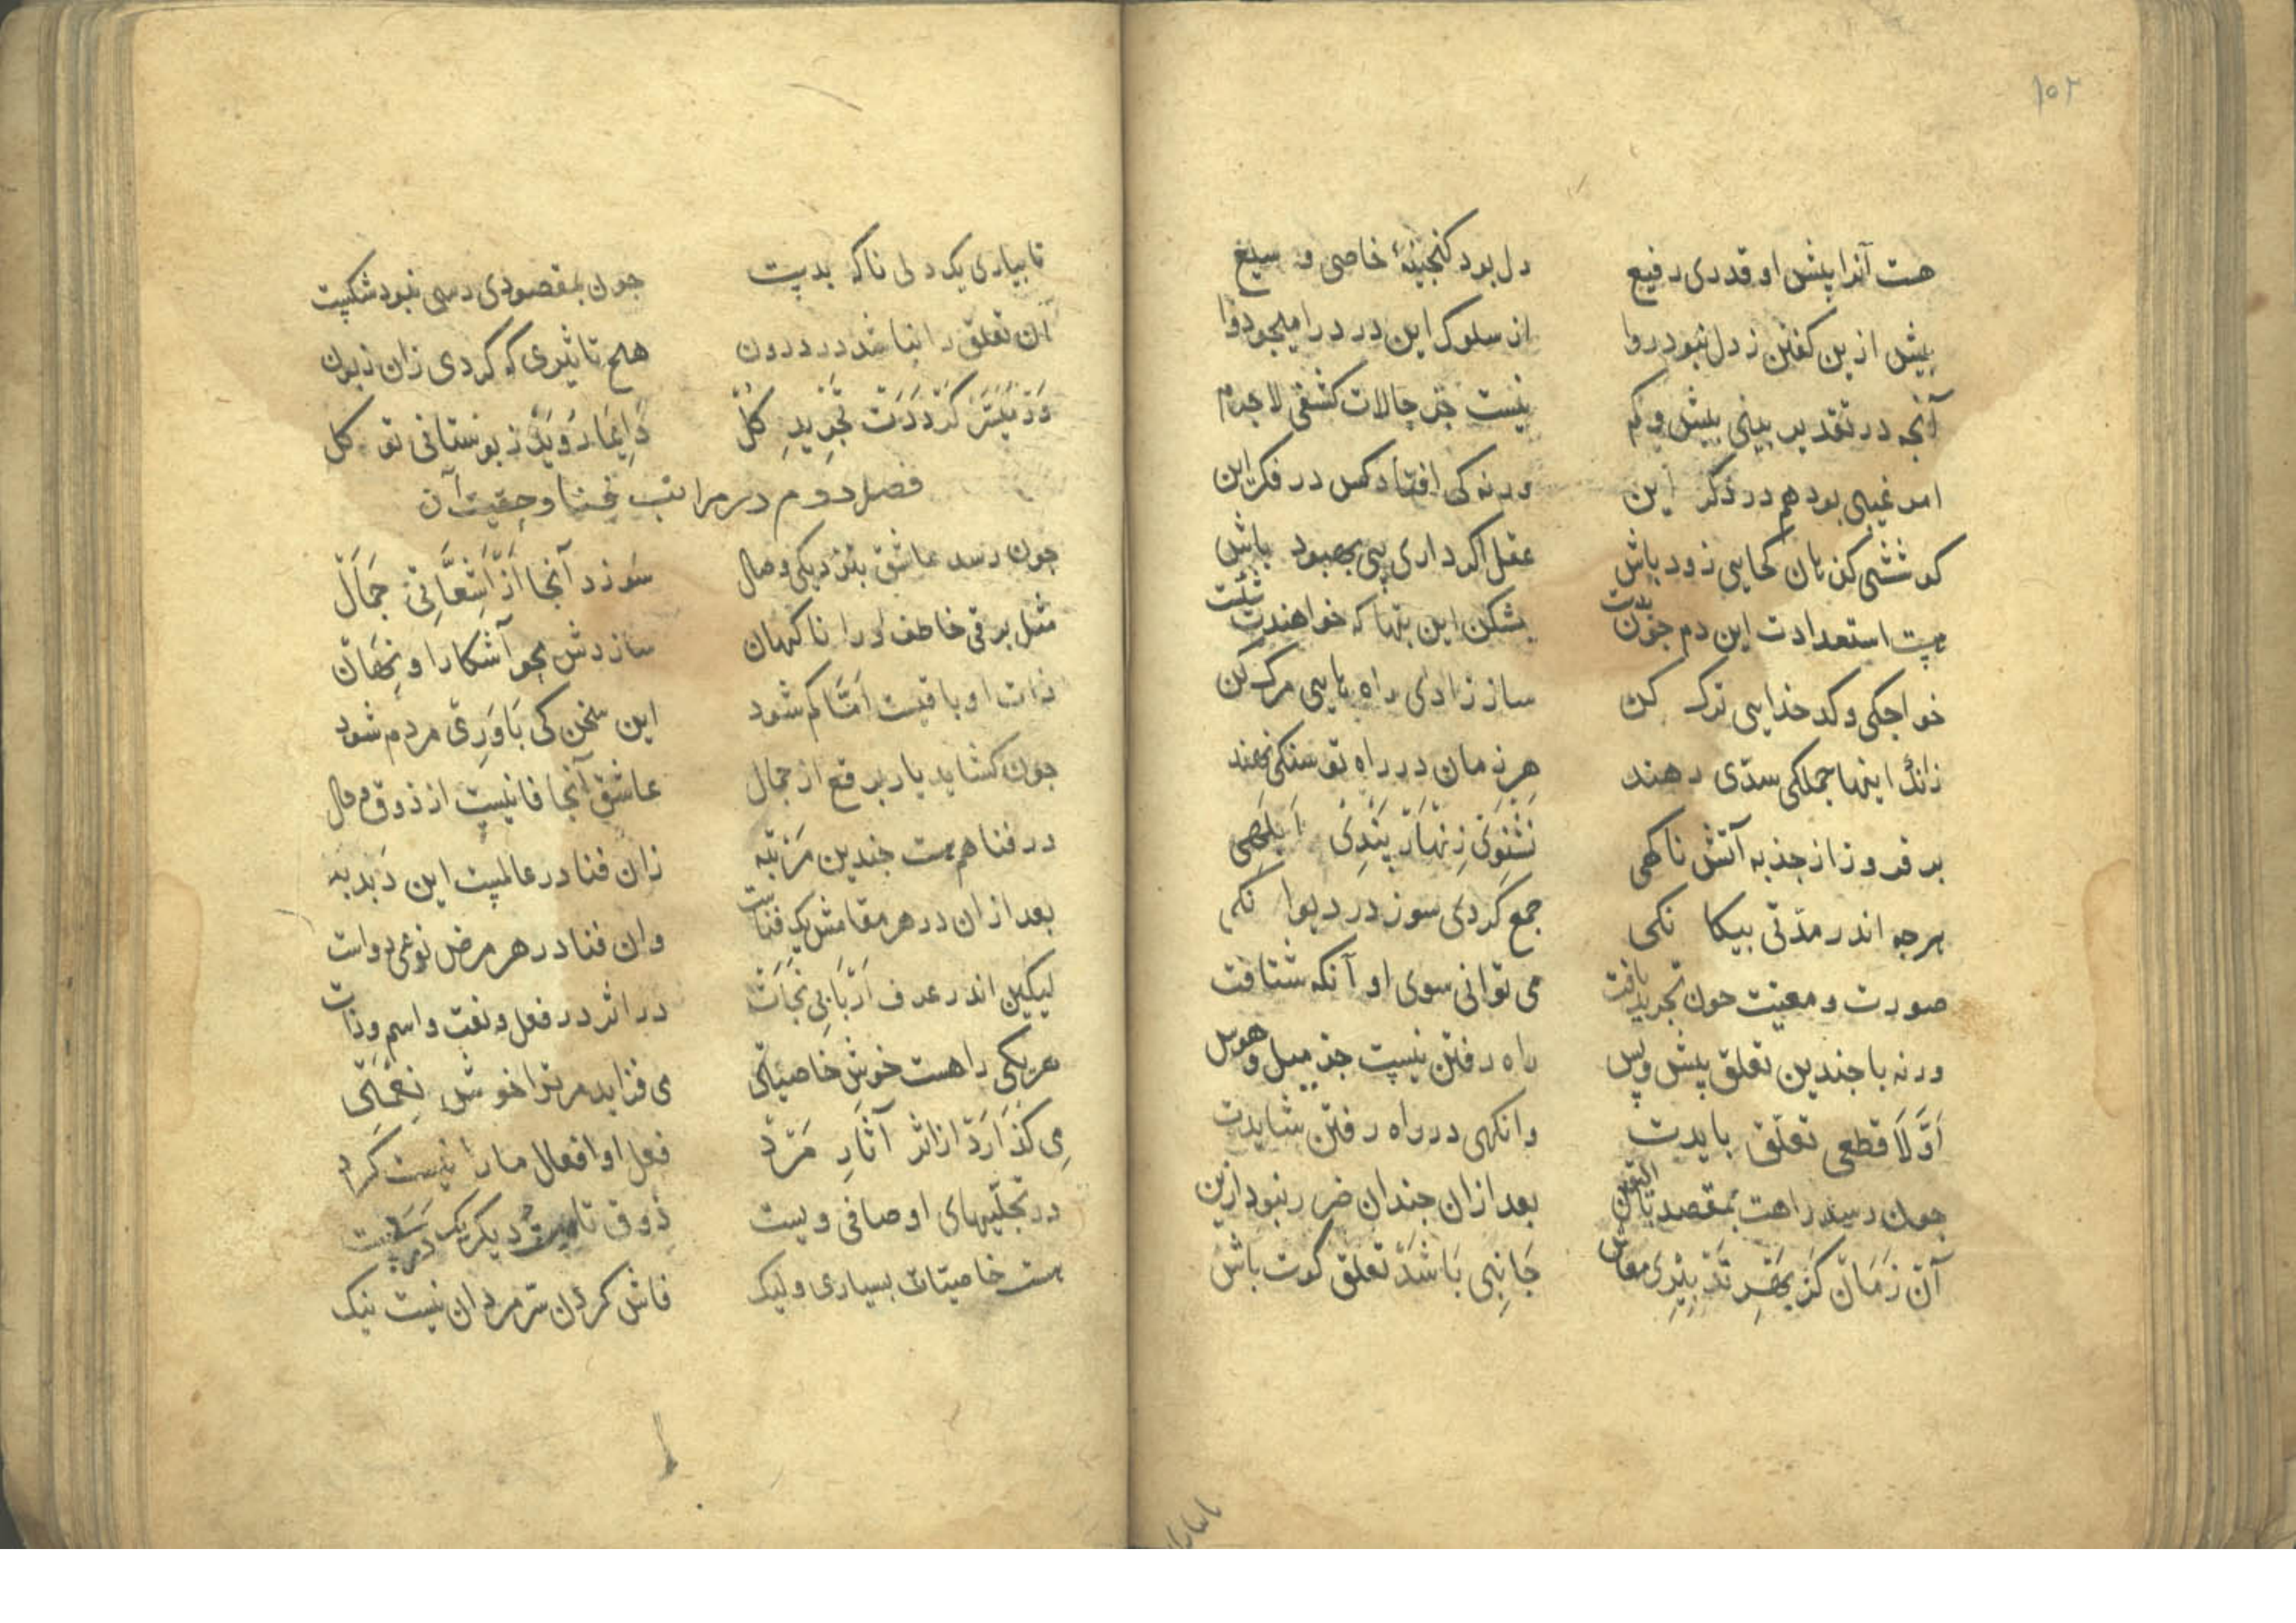 ١٠٢
هست آنرا پیش او قدری رفیع دل بود کنجینهٔ خاصی و
بیش ازین کفتن ز دل نبود روا از سلوک این درد را میجو دوا
آنجه در تقدیر بینی بیش و کم نیست جز حالات کشفی لاجرم
امر غیبی بود هم در ذکر این ورنه کی افتاد کس در فکر این
کوششی کن هان کجایی زود باش عقل اکر داری پی بهبود باش
هست استعدادت این دم جون بدت بشکن این بتها که خواهندت شکست
خواجکی و کدخدایی ترک کن ساز زادی راه یابی مرک کن
زانک اینها جملکی سدّی رهند هر زمان در راه تو سنکی نهند
بر فروز از جذبه آتش ناکهی نشنوی زنهار پندی ابلهی
هرجه اندر مدّتی بیکا نکی جمع کردی سوز در دیوا نکی
صورت و معنیت جون تجرید یافت می توانی سوی او آنکه شتافت
ورنه با جندین تعلق پیش و پس راه رفتن نیست جز میل و هوس
اوّلا قطعی تعلّق بایدت وانکهی در راه رفتن شایدت
جون رسید راهت بمقصد بالیقین بعد ازان جندان ضرر نبود ازین
آن زمان کز بهر تدبیری معاش جانبی باشد تعلق کوت باش
تا بیاری یک دلی ناکه بدست جون بمقصودی رسی نبود شکست
آن تعلق را نباشد در درون هیج تاثیری که کردی زان زبون
ور میسّر کرددت تجرید کل دایما روید ز بوستانی تو کل
فصل دوم در مراتب فنا و حقیت آن
جون رسد عاشق بنزدیکی وصال سوزد آنجا از اشعّاتی جمال
مثل برقی خاطف او را ناکهان سازدش محو آشکارا و نهان
ذات او باقیست امّا کم شود این سخن کی باوری مردم شود
جون کشاید یار برقع از جمال عاشق آنجا فانیست از ذوق حال
در فنا هم هست جندین مرتبه زان فنا در عالمست این دبدبه
بعد ازان در هر مقامش یک فناست وان فنا در هر مرض نوعی دواست
لیکین اندر عرف اربابی نجات در اثر در فعل و نعت و اسم و ذات
هریکی را هست خوش خاصیتی می فزاید مر ترا خوش نعمتی
می کذارد از اثر آثار مرد فعل او افعال ما را نیست کرد
در تجلّیهای اوصافی ویست ذوق تا دیکر یک
هست خاصیتات بسیاری ولیک فاش کردن سرّ مردان نیست نیک